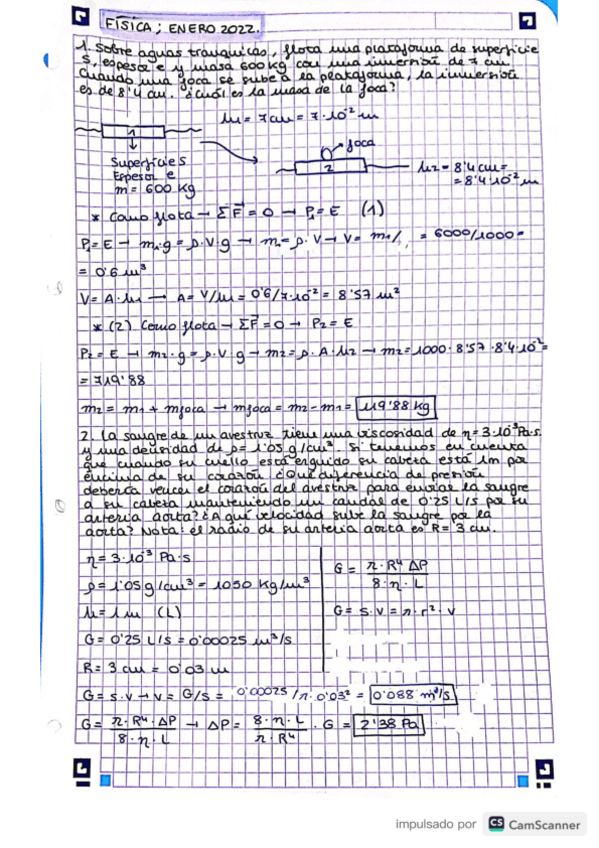 FÍSICA; ENERO 2022.
1. Sobre aguas tranquilas, flota una plataforma de superficie
S, espesor e y masa 600 kg con una inmersión de 7 cm.
Cuando una foca se sube a la plataforma, la inmersión
es de 8'4 cm. ¿Cuál es la masa de la foca?
h1 = 7cm = 7·10⁻² m
1
foca
2
h2 = 8'4 cm =
= 8'4·10⁻² m
Superficie S
Espesor e
m = 600 kg
* Como flota → ΣF⃗ = 0 → P1 = E (1)
P1 = E → m1·g = ρ·V·g → m1 = ρ·V → V = m1/ = 6000/1000 =
= 0'6 m³
V = A·h1 → A = V/h1 = 0'6/7·10⁻² = 8'57 m²
* (2) Como flota → ΣF⃗ = 0 → P2 = E
P2 = E → m2·g = ρ·V·g → m2 = ρ·A·h2 → m2 = 1000·8'57·8'4·10⁻² =
= 719'88
m2 = m1 + mfoca → mfoca = m2 - m1 = 119'88 kg
2. La sangre de un avestruz tiene una viscosidad de η = 3·10⁻³ Pa·s.
y una densidad de ρ = 1'05 g/cm³. Si tenemos en cuenta
que cuando su cuello está erguido su cabeza está 1m por
encima de su corazón ¿Qué diferencia de presión
debería vencer el corazón del avestruz para enviar la sangre
a su cabeza manteniendo un caudal de 0'25 L/s por su
arteria aorta? ¿A qué velocidad sube la sangre por la
aorta? Nota: el radio de su arteria aorta es R = 3 cm.
η = 3·10⁻³ Pa·s
ρ = 1'05 g/cm³ = 1050 kg/m³
h = 1 m (L)
G = 0'25 L/s = 0'00025 m³/s
R = 3 cm = 0'03 m
G = π·R⁴ ΔP / 8·η·L
G = S·V = π·r²·v
G = S·V → V = G/S = 0'00025/π·0'03² = 0'088 m³/s
G = π·R⁴·ΔP / 8·η·L → ΔP = 8·η·L / π·R⁴ · G = 2'38 Pa
impulsado por CS CamScanner